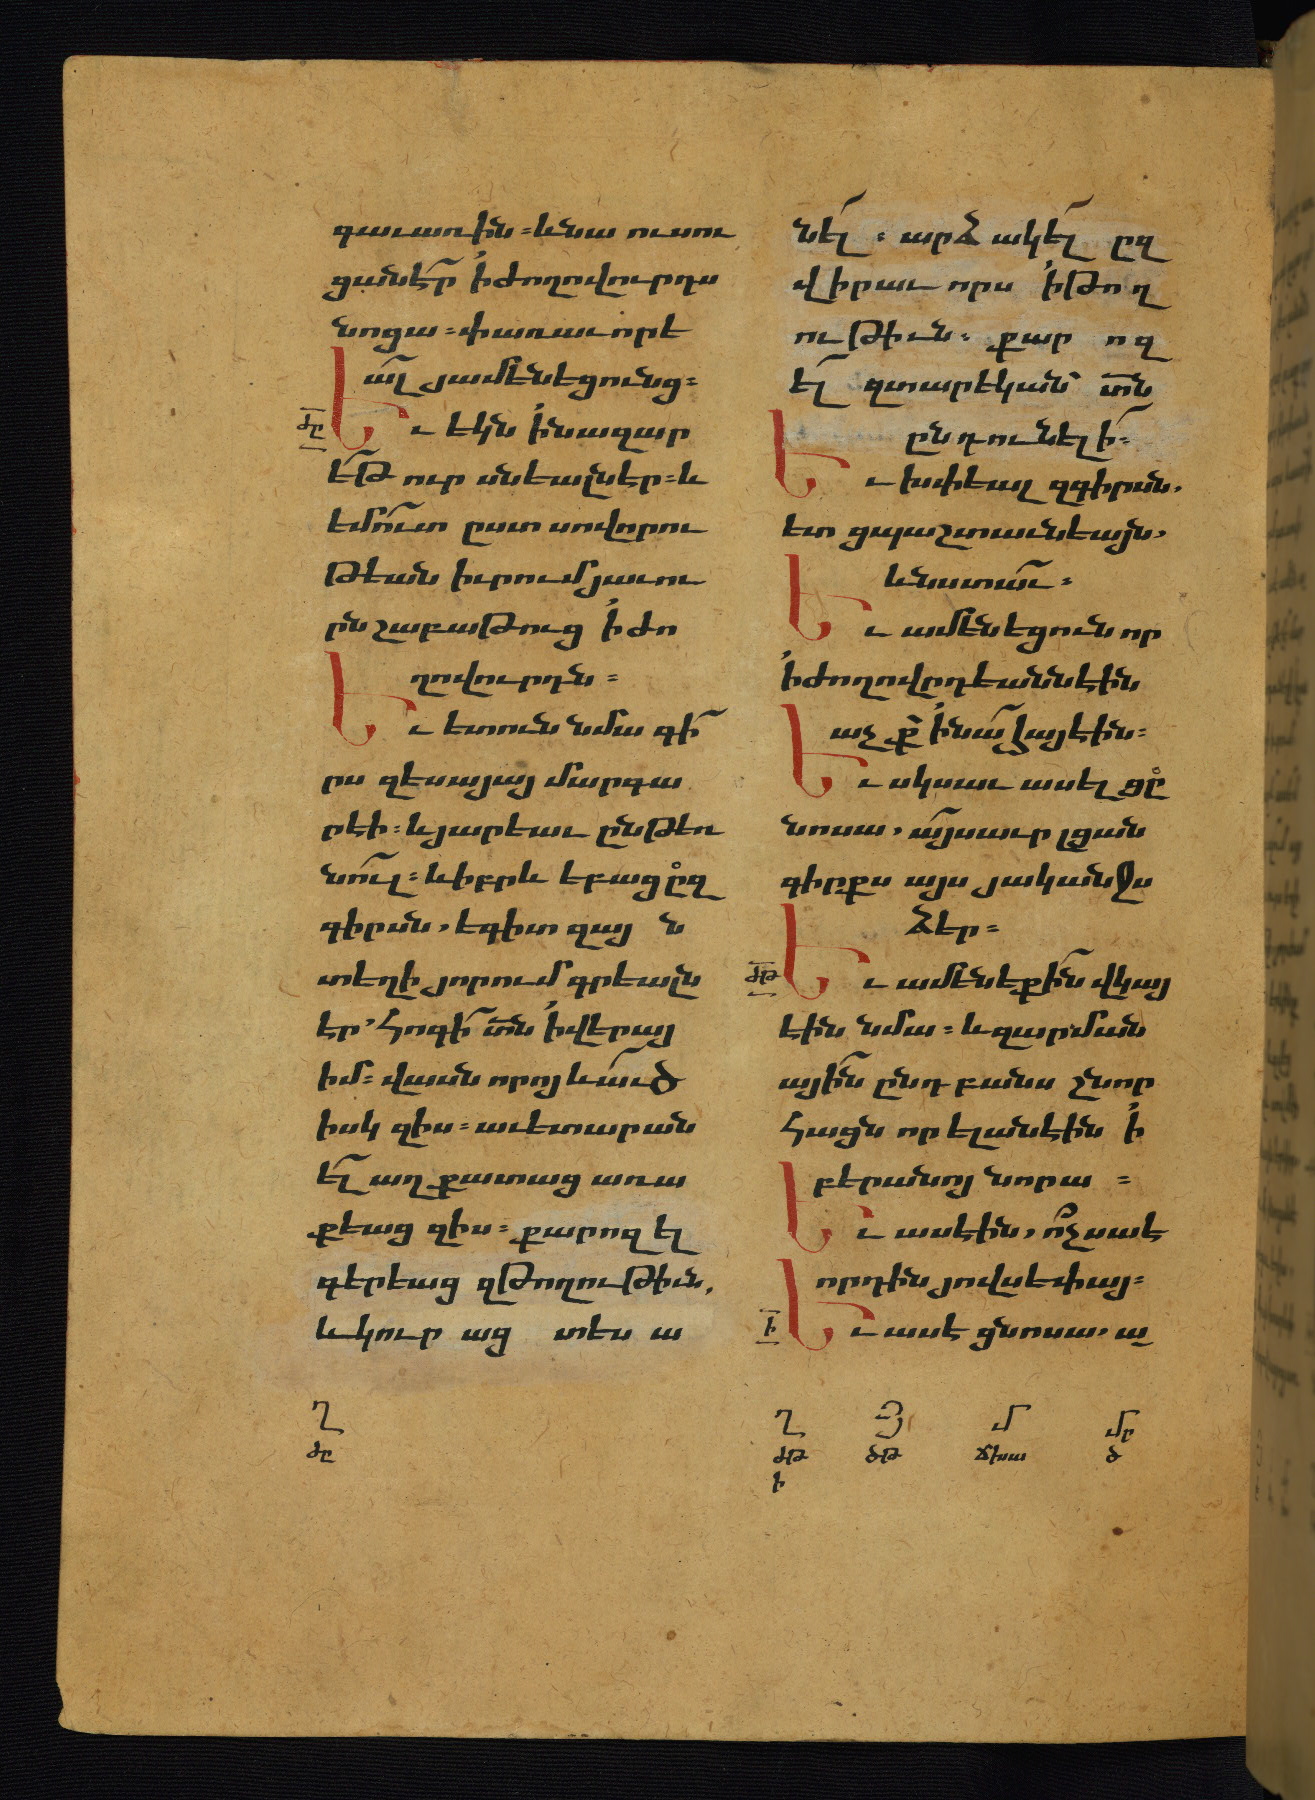 գաւառին։ և նա ուսու
ցանէր ի ժողովուրդս
նոցա։ փառաւորե
ալ յամենեցունց։
ժը
Եւ եկն ի նազար
եթ ուր սնեալն էր։ և
եմուտ ըստ սովորու
թեան իւրում յաւու
րն շաբաթուց ի ժո
ղովուրդն։
Եւ ետուն նմա գի
րս զեսայայ մարգա
րէի։ և յարեաւ ընթեռ
նուլ։ և իբրև եբաց ըզ
գիրսն, եգիտ զայն
տեղի յորում գրեալն
էր՝ հոգի տն ի վերայ
իմ։ վասն որոյ և աւծ
իսկ զիս։ աւետարան
ել աղքատաց առա
քեաց զիս։ քարոզել
գերեաց զթողութիւն,
և կուրաց տեսա
նել։ արձակել ըզ
վիրաւորս ի թող
ութիւն։ քարոզ
ել զտարեկան տն
ընդունելի։
Եւ խփեալ զգիրսն,
ետ ցպաշտաւնեայն,
և նստաւ։
Եւ ամենեցուն որ
ի ժողովրդեանն էին
աչք ի նա հայէին։
Եւ սկսաւ ասել ցը
նոսա, այսաւր լցան
գիրքս այս յականջս
ձեր։
ժթ
Եւ ամենեքին վկայ
էին նմա։ և զարման
ային ընդ բանս շնոր
հացն որ ելանէին ի
բերանոյ նորա։
Եւ ասէին, ոչ սա է
որդին յովսեփայ։
ի
Եւ ասէ ցնոսա, ա
Ղ
ժը
Ղ Յ Մ Մր
ժթ ծթ ճխա ծ
ի